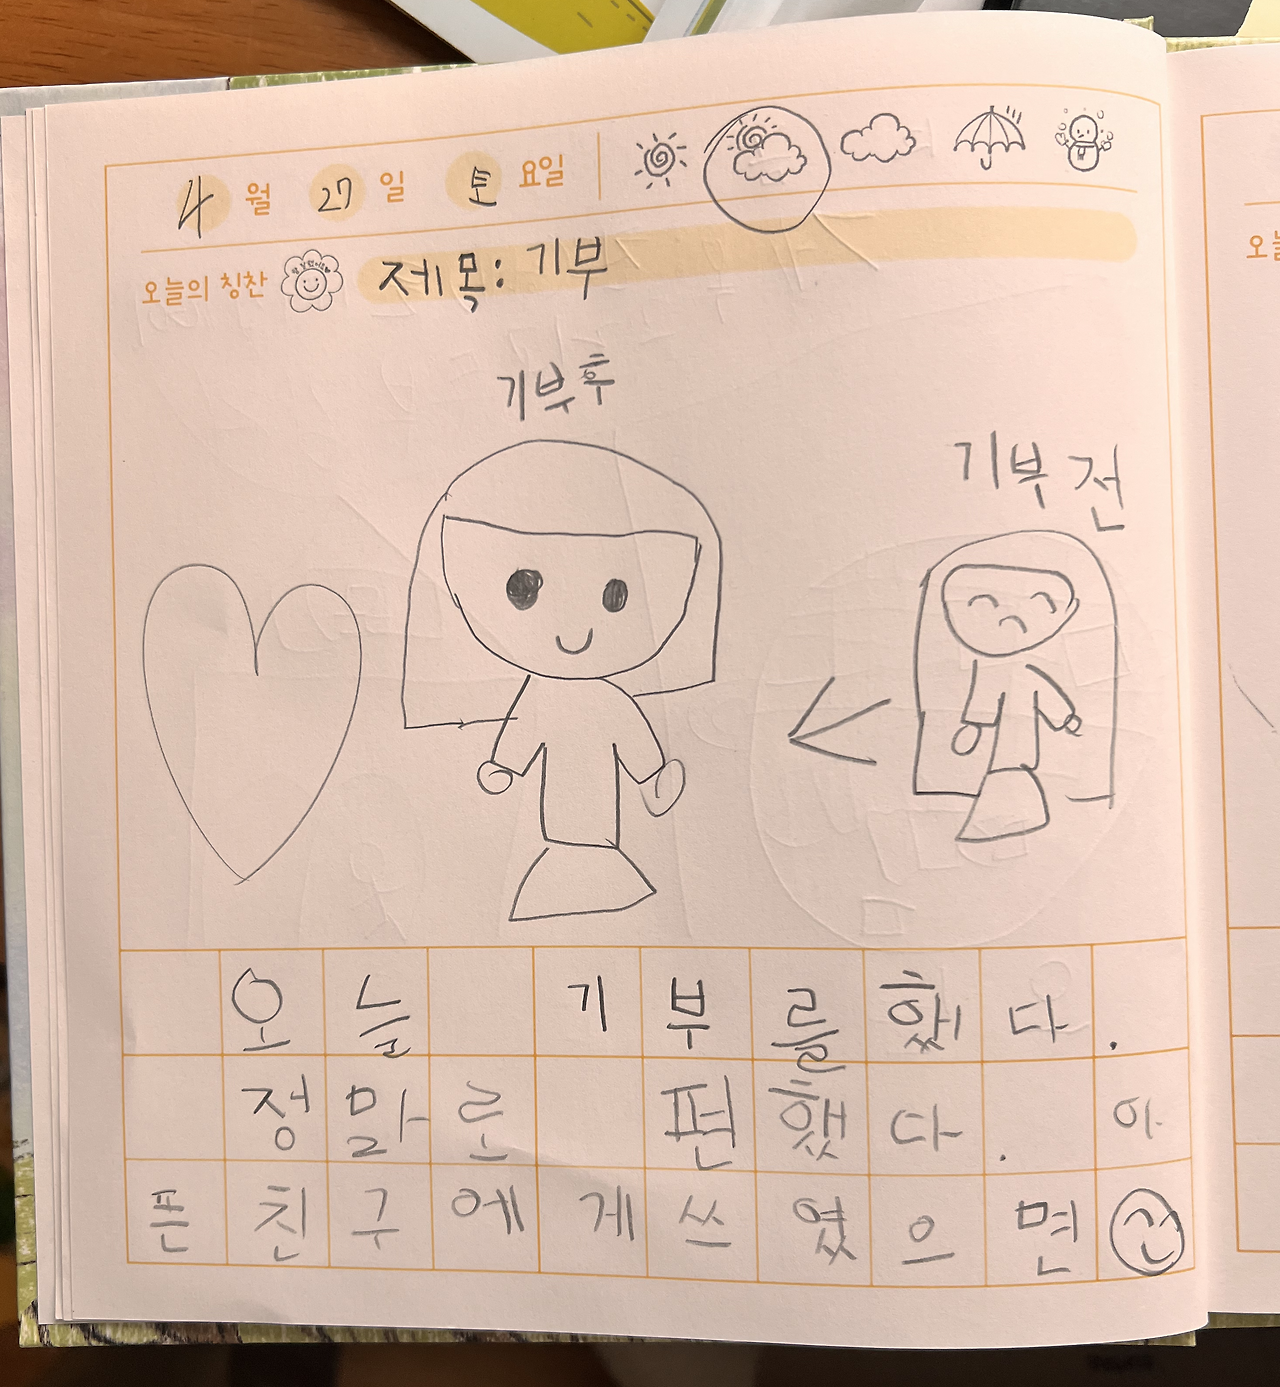 4월 27일 토요일
오늘의 칭찬 제목: 기부
기부후
기부 전
오늘 기부를했다.
정말로 편했다. 아
픈친구에게쓰였으면
오늘